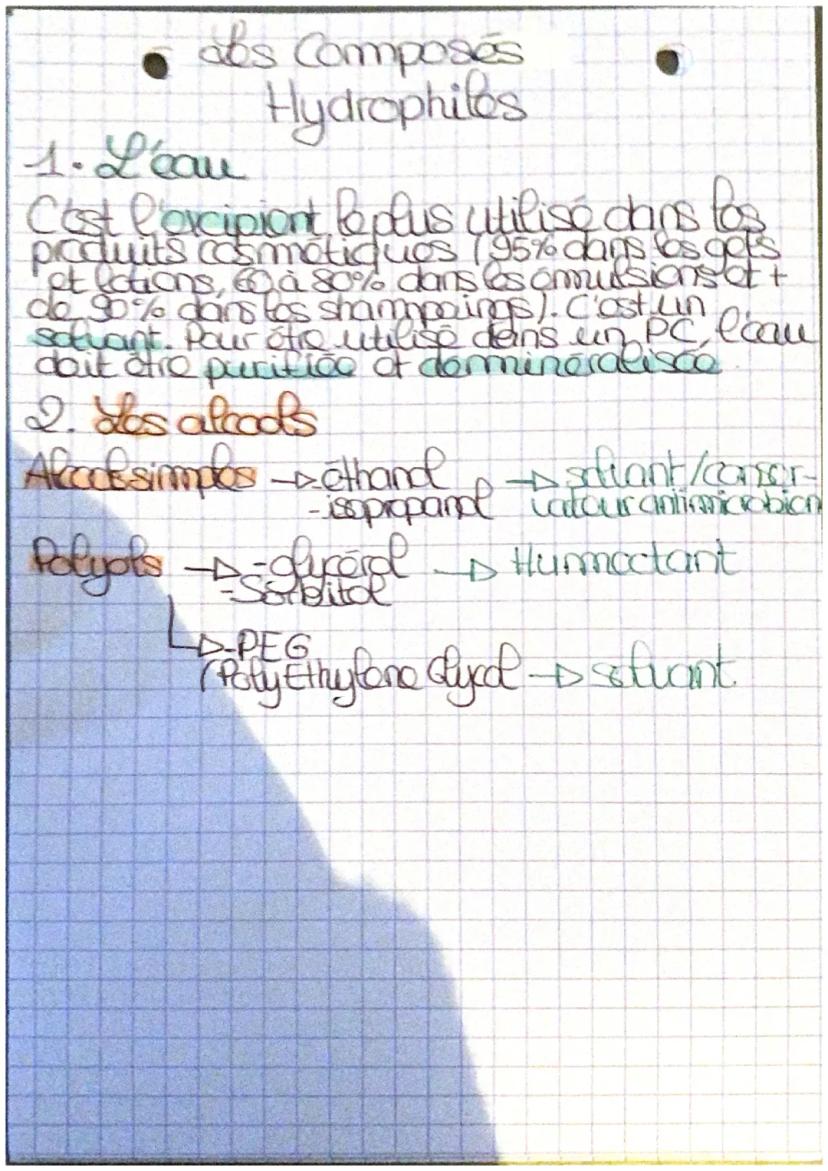 Les Composés
Hydrophiles
1. L'eau
C'est l'excipient le plus utilisé dans les
produits cosmétiques (95% dans les gels
et lotions, 60 à 80% dans les émulsions et +
de 90% dans les shampoings). C'est un
solvant. Pour être utilisé dans un PC, l'eau
doit être purifiée et déminéralisée.
2. Les alcools
Alcools simples → -éthanol → solvant/conser-
-isopropanol vateur antimicrobien
Polyols → -glycérol → Humectant
-Sorbitol
→ -PEG
(PolyEthylene Glycol → solvant